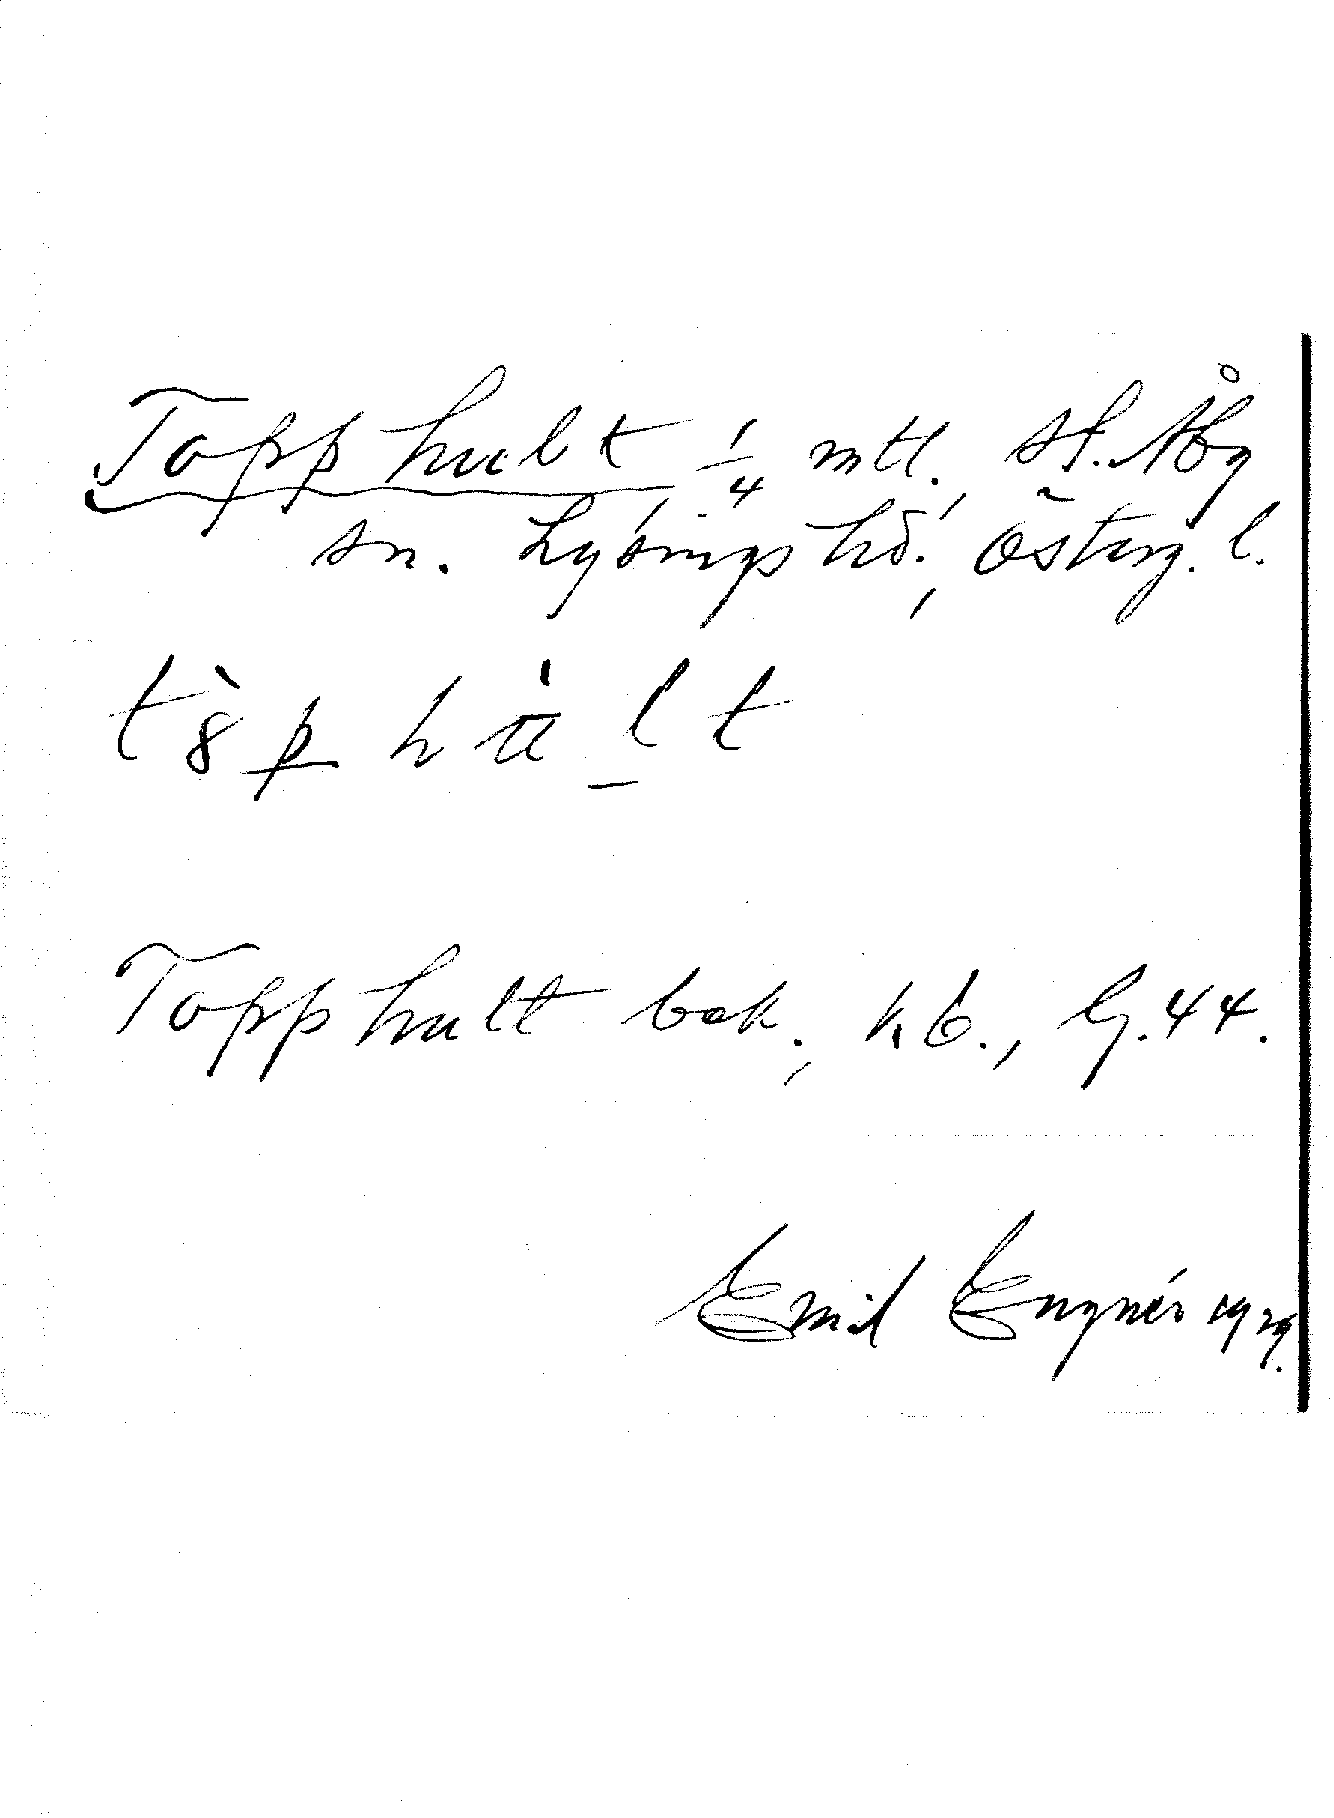 Topphult 1/4 mtl. St. Åby
sn. Lysings hd., Österg. l.
t8̀p hàlt
Topphult bok., kb., lj. 44.
Emil Engnér 1929.